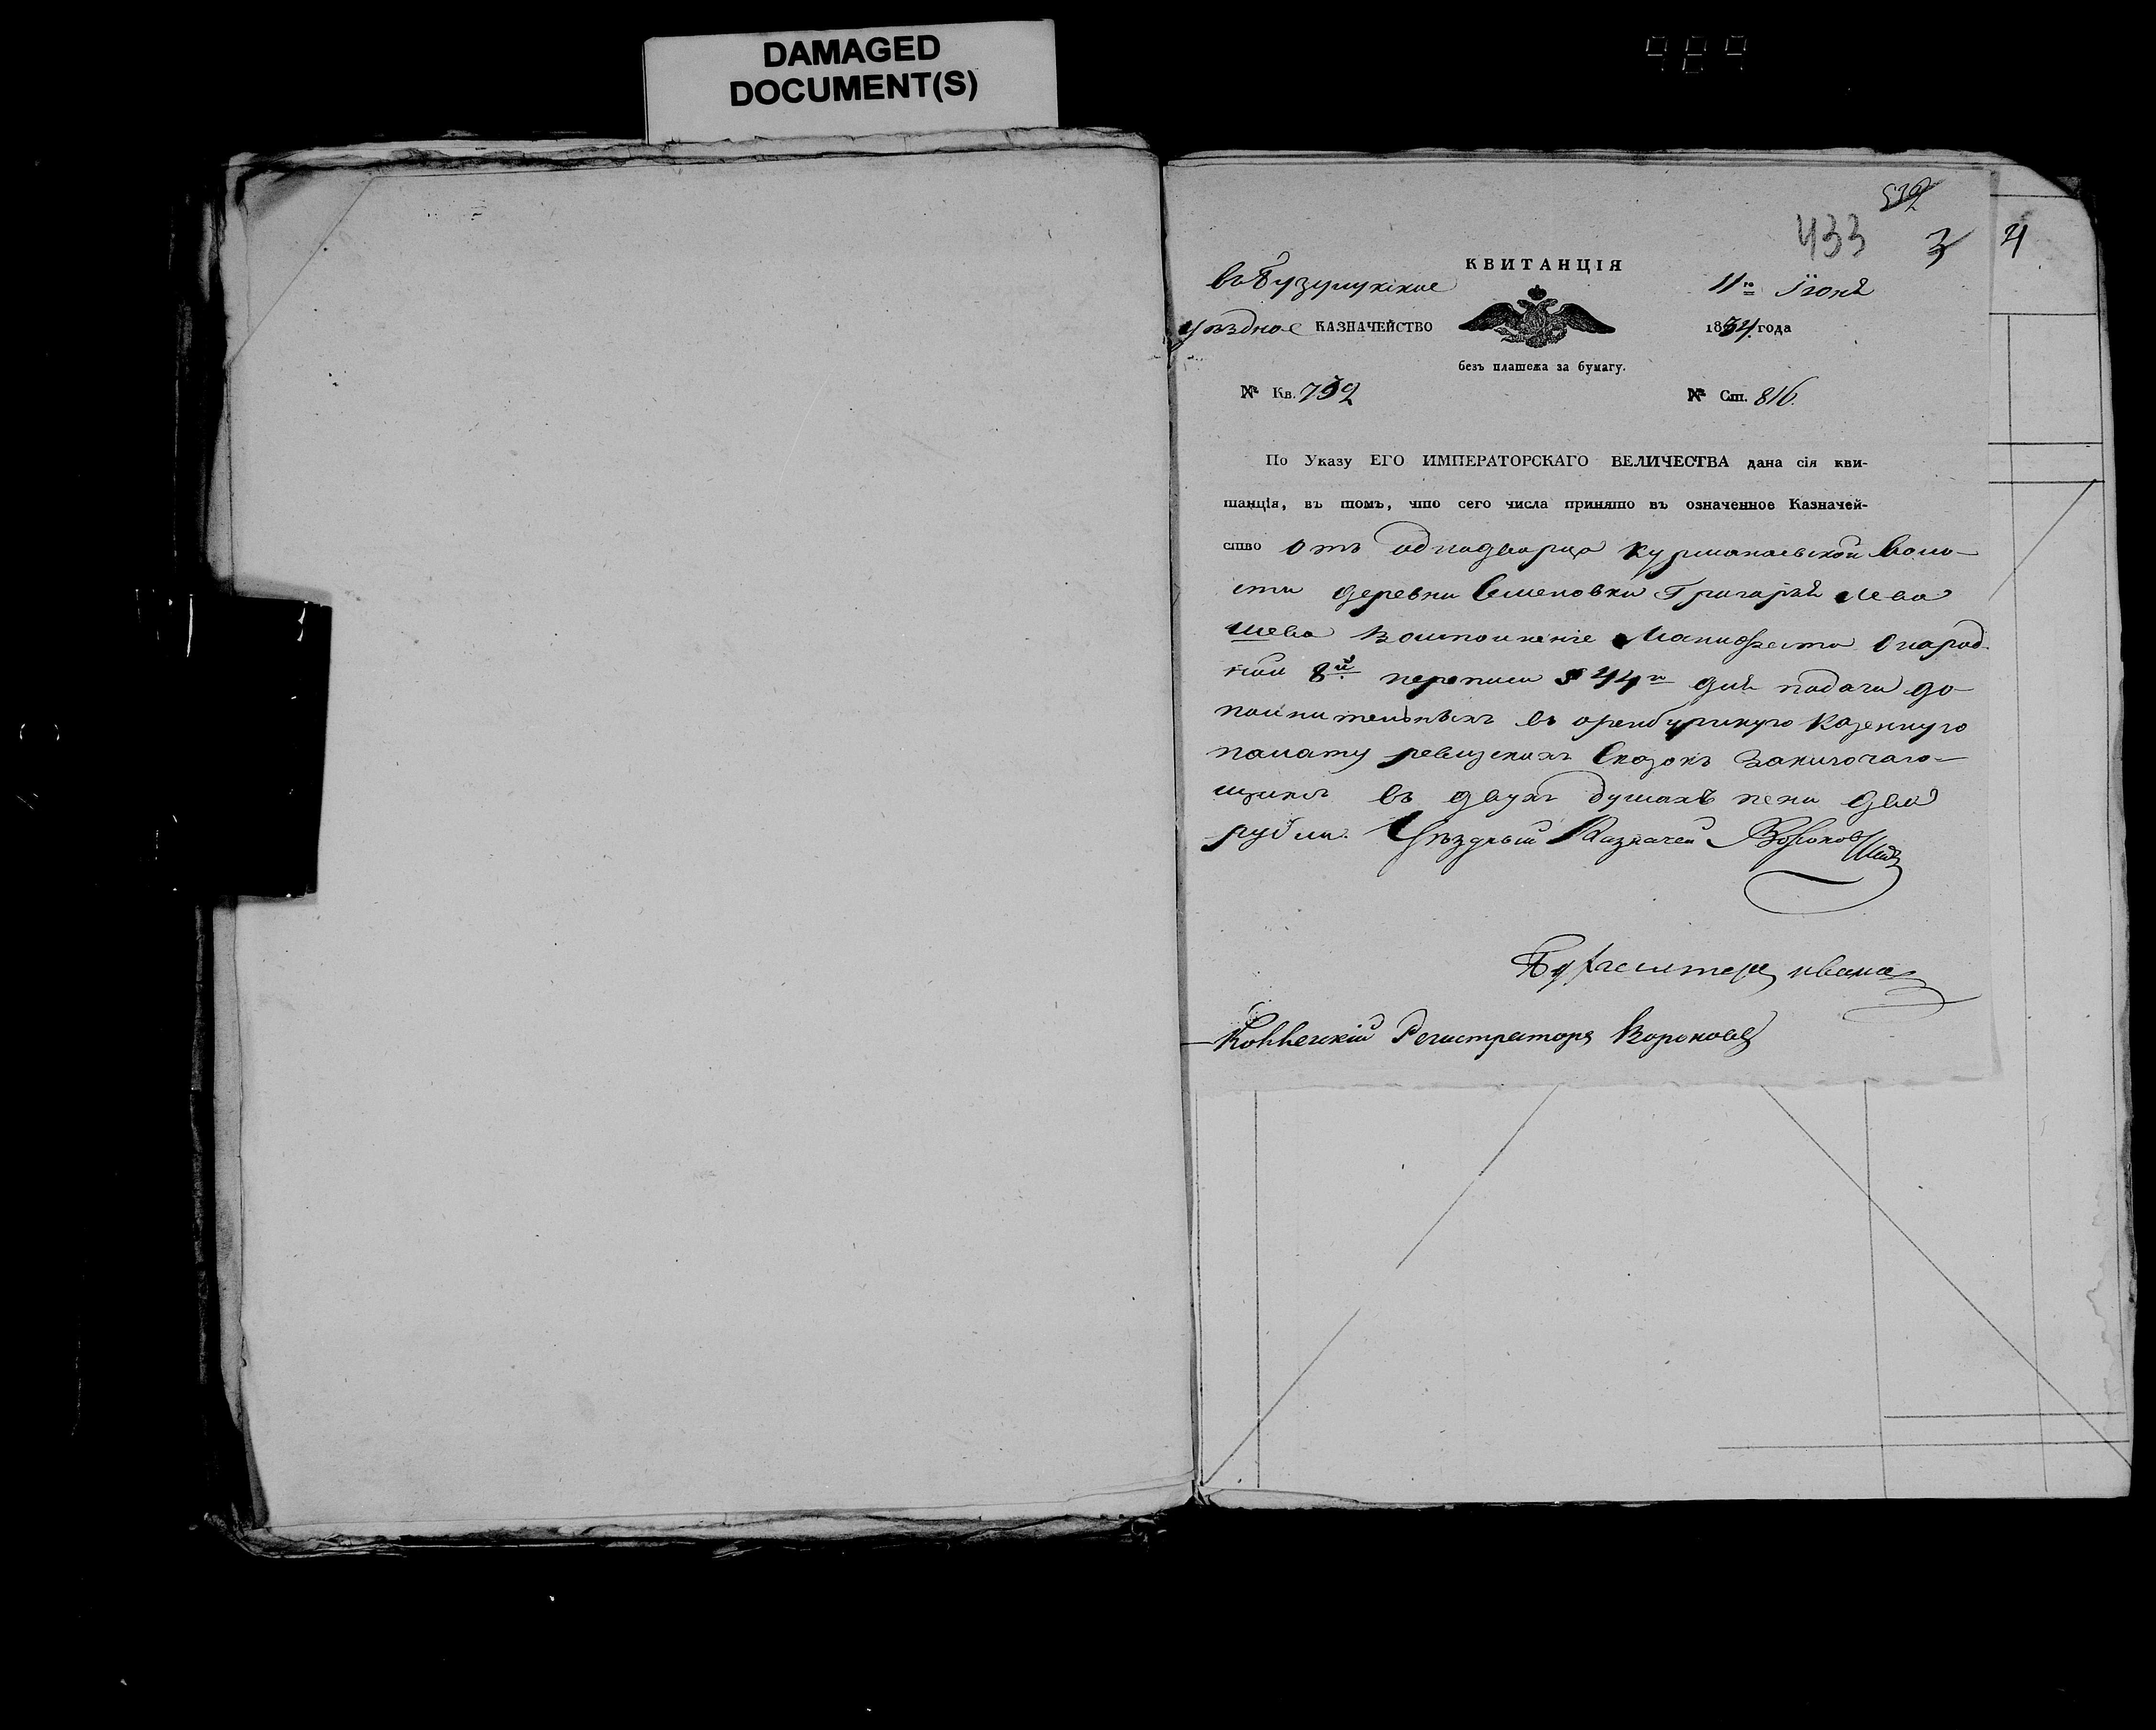 DAMAGED
DOCUMENT(S)
433 3 4
КВИТАНЦІЯ
въ Бузулукское 11го Іюня
уѣздное КАЗНАЧЕЙСТВО 1834 года
безъ платежа за бумагу.
№ Кв. 792 № Ст. 816.
По Указу ЕГО ИМПЕРАТОРСКАГО ВЕЛИЧЕСТВА дана сія кви-
танція, въ томъ, что сего числа принято въ означенное Казначей-
ство отъ однодворца Курманаевской воло-
сти деревни Семеновки Григорья Лева
шева Манифеста о народ-
ной 8й переписи § 44го для подачи до-
полнительныхъ въ оренбургскую Казенную
палату ревизскихъ Сказокъ заключаю-
щихъ въ двухъ душахъ пени два
рубли. Уѣздный Казначей
Бухгалтеръ Ивана
Коллежскій Регистраторъ Вороновъ